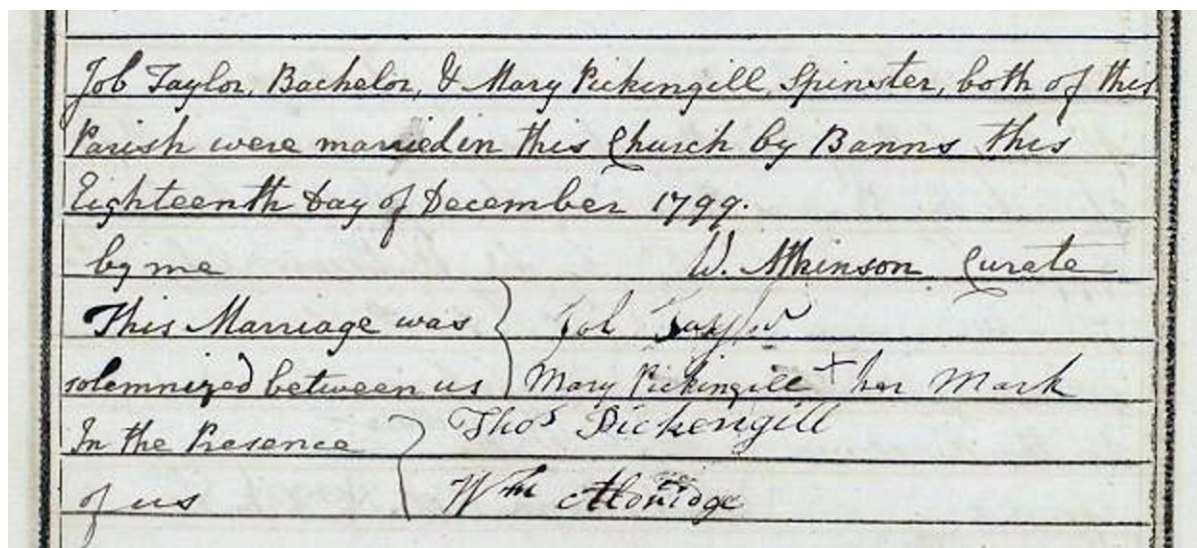 Job Taylor, Bachelor, & Mary Pickengill, Spinster, both of this
Parish were married in this Church by Banns this
Eighteenth Day of December 1799.
by me W. Atkinson Curate
This Marriage was Job Taylor
solemnized between us Mary Pickingill + her Mark
In the Presence Thos Pickengill
of us Wm